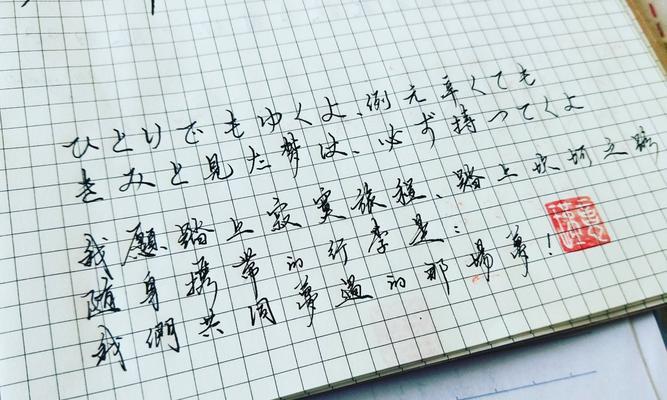 ひとりでもゆくよ、例元辛くても
きみと見た夢は、必ず持ってくよ
我愿踏上寂寞旅程、踏上坎坷之路
随身携帶的行李是:
我們共同夢過的那場夢!